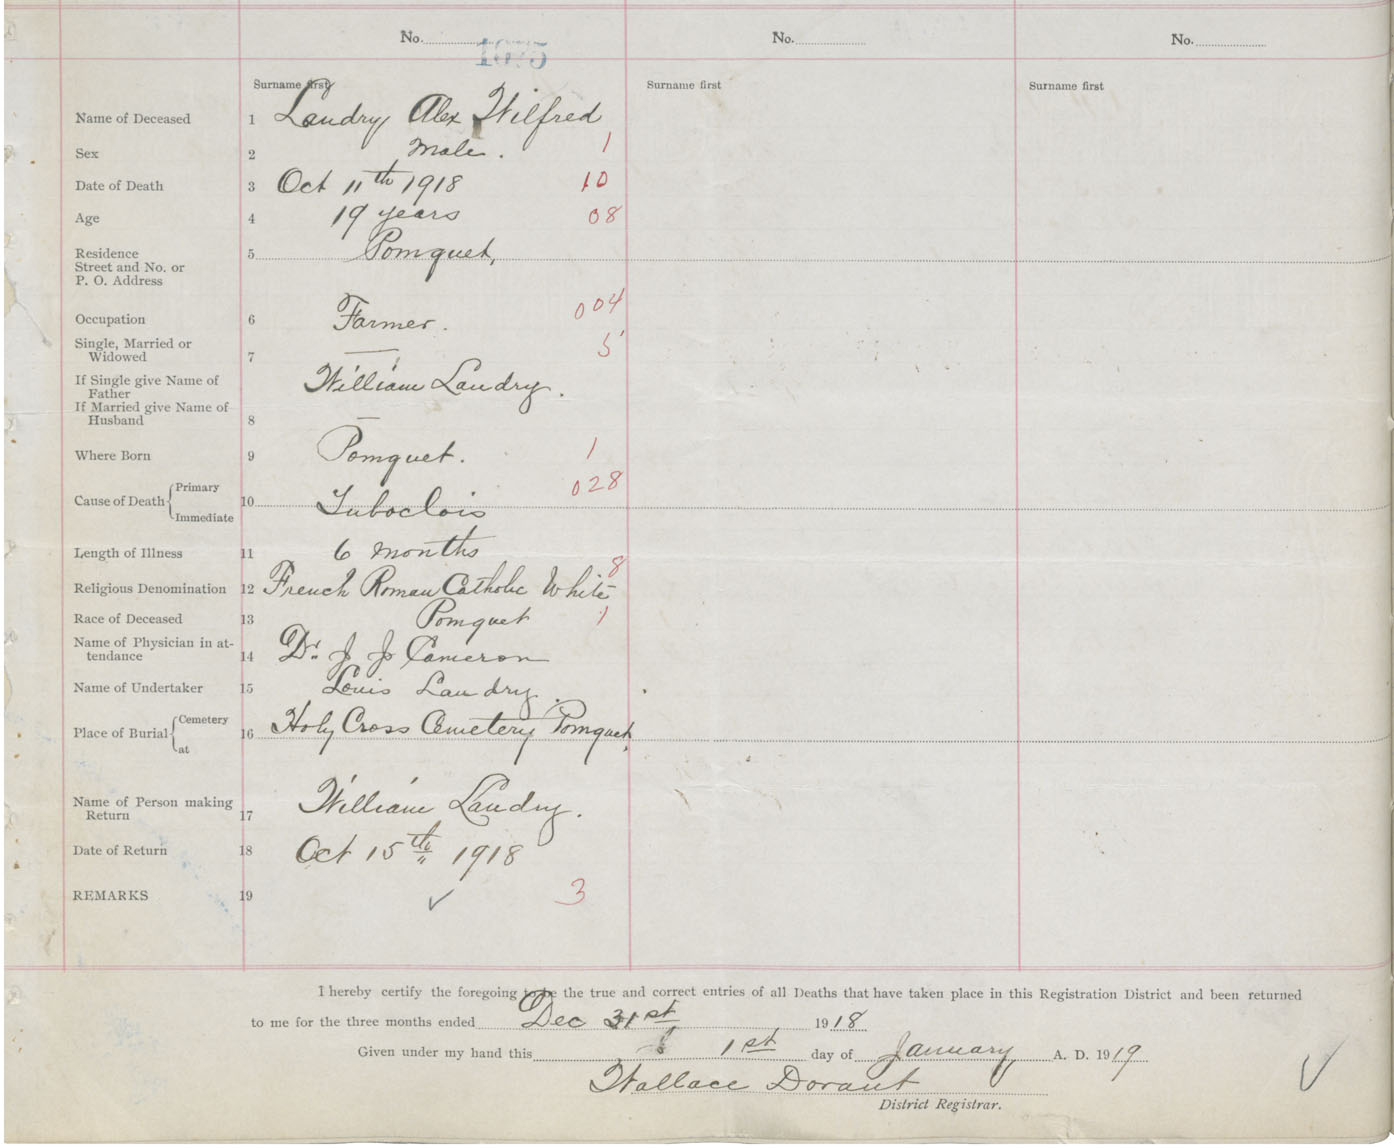 No. 1675 No. No.
Surname first Surname first Surname first
Name of Deceased 1 Landry Alex Wilfred
Sex 2 Male. 1
Date of Death 3 Oct 11th 1918 10
Age 4 19 years 08
Residence 5 Pomquet,
Street and No. or
P. O. Address
Occupation 6 Farmer. 004
Single, Married or 5
Widowed 7 —
If Single give Name of William Landry.
Father
If Married give Name of
Husband 8 —
Where Born 9 Pomquet. 1
Cause of Death { Primary 028
10 Tuboclois
Immediate
Length of Illness 11 6 months
8
Religious Denomination 12 French Roman Catholic White
Race of Deceased 13 Pomquet 1
Name of Physician in at-
tendance 14 Dr. J J Cameron
Name of Undertaker 15 Louis Landry.
Place of Burial { Cemetery
16 Holy Cross Cemetery Pomquet,
at
Name of Person making
Return 17 William Landry.
Date of Return 18 Oct 15th 1918
REMARKS 19 ✓ 3
I hereby certify the foregoing to be the true and correct entries of all Deaths that have taken place in this Registration District and been returned
to me for the three months ended Dec 31st 1918
Given under my hand this 1st day of January A. D. 1919 ✓
Wallace Dorant
District Registrar.